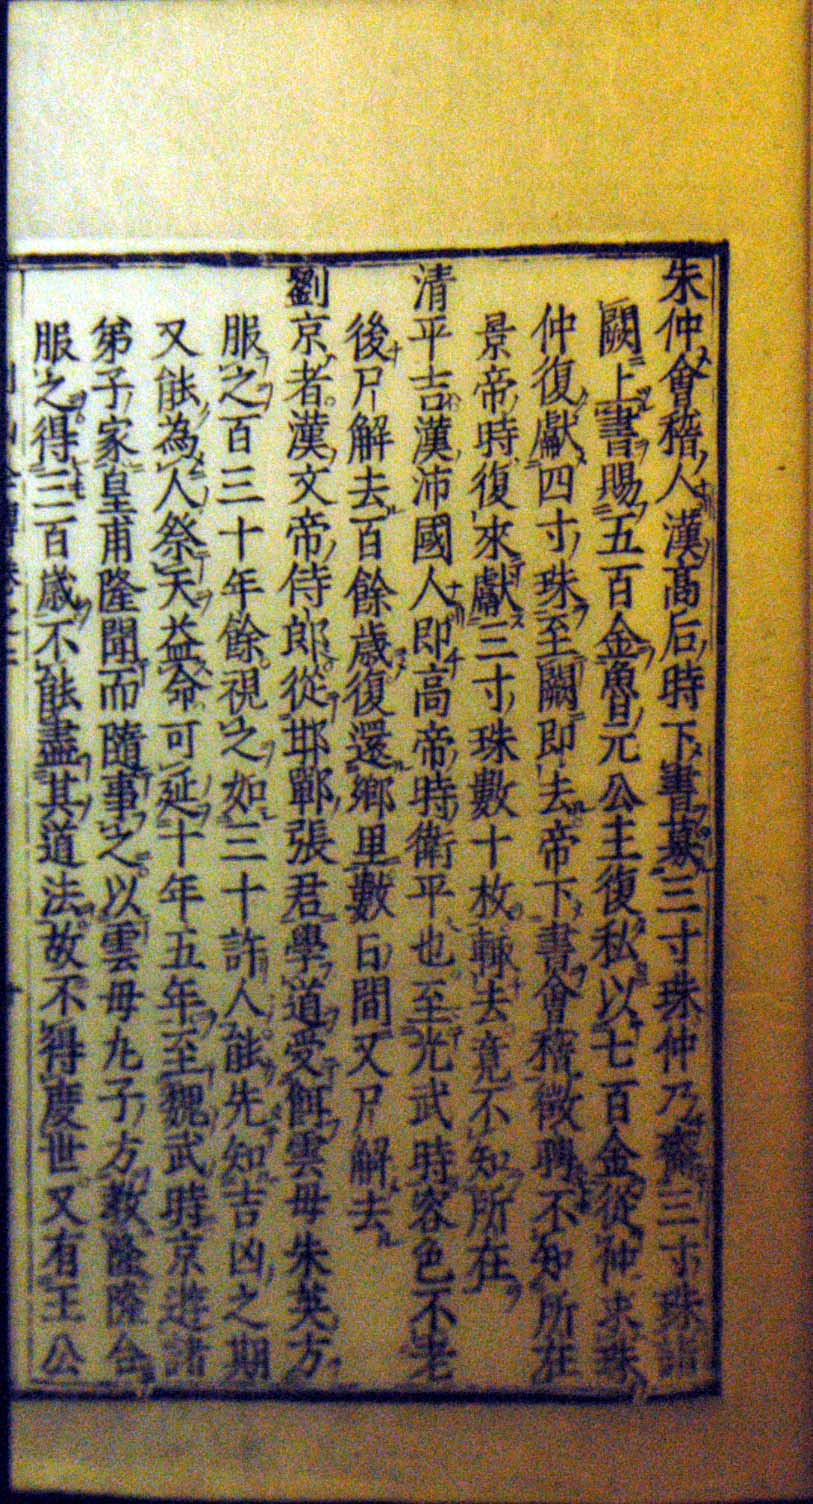 朱仲會稽人漢高后時下書募三寸珠仲乃齎三寸珠詣
闕上書賜五百金魯元公主復私以七百金從仲求珠
仲復獻四寸珠至闕即去帝下書會稽徵聘不知所在
景帝時復來獻三寸珠數十枚輒去竟不知所在
清平吉漢沛國人即高帝時衛平也至光武時容色不老
後尸解去百餘歲復還鄉里數日間又尸解去
劉京者漢文帝侍郎從邯鄲張君學道受餌雲母朱英方
服之百三十年餘視之如三十許人能先知吉凶之期
又能為人祭天益命可延十年五年至魏武時京遊諸
弟子家皇甫隆聞而隨事之以雲母九子方教隆隆合
服之得三百歲不能盡其道法故不得度世又有王公